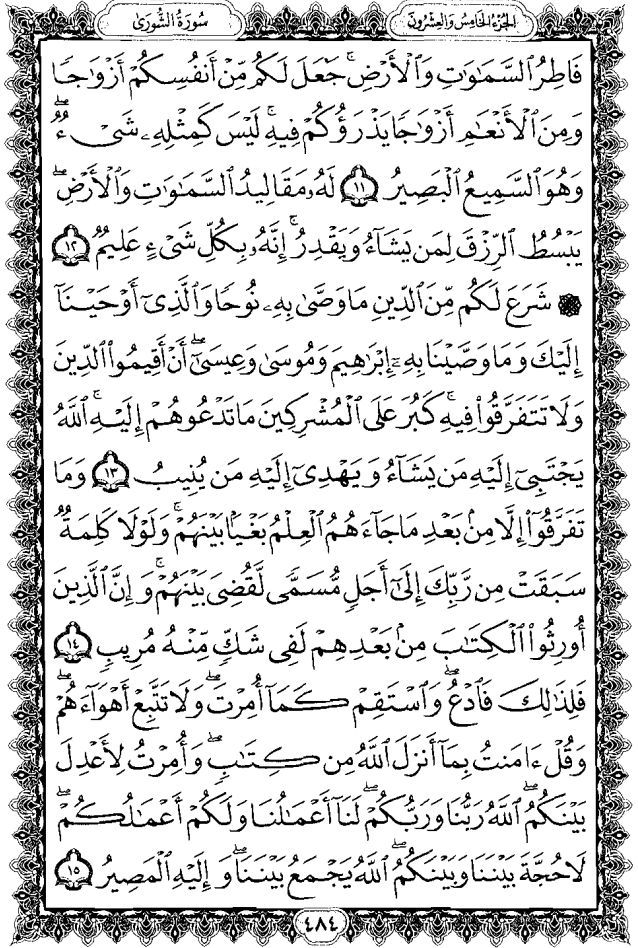 الجزء الخامس والعشرون
سورة الشورى
فَاطِرُ السَّمَٰوَٰتِ وَالْأَرْضِ ۚ جَعَلَ لَكُم مِّنْ أَنفُسِكُمْ أَزْوَٰجًا
وَمِنَ الْأَنْعَٰمِ أَزْوَٰجًا يَذْرَؤُكُمْ فِيهِ ۚ لَيْسَ كَمِثْلِهِۦ شَىْءٌ ۖ
وَهُوَ السَّمِيعُ الْبَصِيرُ ١١ لَهُۥ مَقَالِيدُ السَّمَٰوَٰتِ وَالْأَرْضِ ۖ
يَبْسُطُ الرِّزْقَ لِمَن يَشَآءُ وَيَقْدِرُ ۚ إِنَّهُۥ بِكُلِّ شَىْءٍ عَلِيمٌ ١٢
۞ شَرَعَ لَكُم مِّنَ الدِّينِ مَا وَصَّىٰ بِهِۦ نُوحًا وَالَّذِىٓ أَوْحَيْنَآ
إِلَيْكَ وَمَا وَصَّيْنَا بِهِۦٓ إِبْرَٰهِيمَ وَمُوسَىٰ وَعِيسَىٰٓ ۖ أَنْ أَقِيمُوا الدِّينَ
وَلَا تَتَفَرَّقُوا فِيهِ ۚ كَبُرَ عَلَى الْمُشْرِكِينَ مَا تَدْعُوهُمْ إِلَيْهِ ۚ اللَّهُ
يَجْتَبِىٓ إِلَيْهِ مَن يَشَآءُ وَيَهْدِىٓ إِلَيْهِ مَن يُنِيبُ ١٣ وَمَا
تَفَرَّقُوٓا إِلَّا مِنۢ بَعْدِ مَا جَآءَهُمُ الْعِلْمُ بَغْيًۢا بَيْنَهُمْ ۚ وَلَوْلَا كَلِمَةٌ
سَبَقَتْ مِن رَّبِّكَ إِلَىٰٓ أَجَلٍ مُّسَمًّى لَّقُضِىَ بَيْنَهُمْ ۚ وَإِنَّ الَّذِينَ
أُورِثُوا الْكِتَٰبَ مِنۢ بَعْدِهِمْ لَفِى شَكٍّ مِّنْهُ مُرِيبٍ ١٤
فَلِذَٰلِكَ فَادْعُ ۖ وَاسْتَقِمْ كَمَآ أُمِرْتَ ۖ وَلَا تَتَّبِعْ أَهْوَآءَهُمْ ۖ
وَقُلْ ءَامَنتُ بِمَآ أَنزَلَ اللَّهُ مِن كِتَٰبٍ ۖ وَأُمِرْتُ لِأَعْدِلَ
بَيْنَكُمُ ۖ اللَّهُ رَبُّنَا وَرَبُّكُمْ ۖ لَنَآ أَعْمَٰلُنَا وَلَكُمْ أَعْمَٰلُكُمْ ۖ
لَا حُجَّةَ بَيْنَنَا وَبَيْنَكُمُ ۖ اللَّهُ يَجْمَعُ بَيْنَنَا ۖ وَإِلَيْهِ الْمَصِيرُ ١٥
٤٨٤